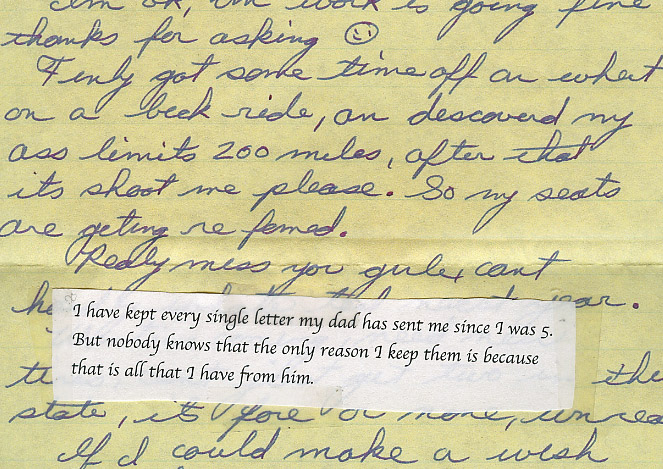 ok, work is going fine
thanks for asking ☺
Finly got some time off an whent
on a beek ride, an descoverd my
ass limits 200 miles, after that
its shoot me please. So my seats
are geting re fomed.
Realy miss you girle, cant
year.
I have kept every single letter my dad has sent me since I was 5.
But nobody knows that the only reason I keep them is because
that is all that I have from him.
the
state, it's fore or more,
If I could make a wish